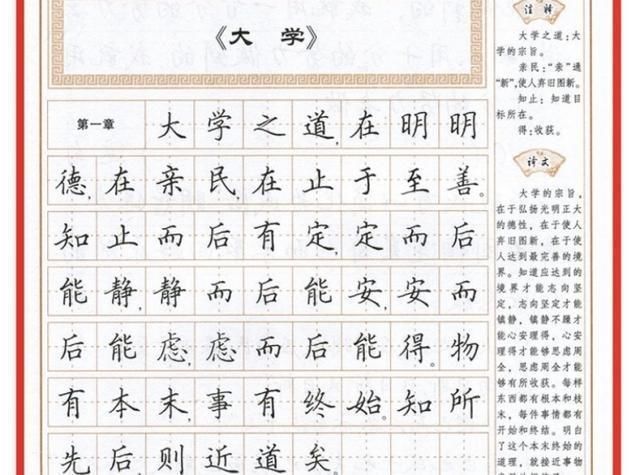 《大 学》
第一章 大学之道,在明明
德,在亲民,在止于至善。
知止而后有定,定而后
能静,静而后能安,安而
后能虑,虑而后能得。物
有本末,事有终始。知所
先后,则近道矣。
注释
大学之道:大
学的宗旨。
亲民:“亲”通
“新”,使人弃旧图新。
知止:知道目
标所在。
得:收获。
译文
大学的宗旨,
在于弘扬光明正大
的德性,在于使人
弃旧图新,在于使
人达到最完善的境
界。知道应达到的
境界才能志向坚
定,志向坚定才能
镇静,镇静不躁才
能心安理得,心安
理得才能够思虑周
全,思虑周全才能
够有所收获。每样
东西都有根本和枝
末,每件事情都有
开始和终结。明白
了这个本末终始的
道理,就接近事物